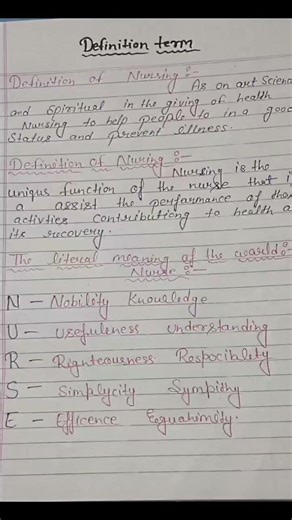 Definition term
Definition of Nursing :-
As on art Scienc
and Spiritual in the giving of health
Nursing to help people to in a good
Status and prevent illness.
Definition of Nursing :-
Nursing is the
uniqus function of the nurse that i
a assist the performance of thos
activties contributiong to health a
its recovery.
The literal meaning of the woarld :-
Nurse :-
N - Nobility Knowledge
U - Usefuleness Understanding
R - Righteousness Respocibility
S - Simplycity Sympthy
E - Efficence Equanimity.